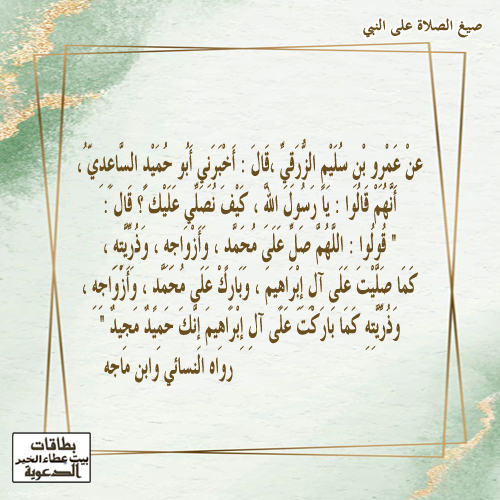 صيغ الصلاة على النبي
عَنْ عَمْرِو بْنِ سُلَيْمٍ الزُّرَقِيِّ ،قَالَ : أَخْبَرَنِي أَبُو حُمَيْدٍ السَّاعِدِيِّ ُ،
أَنَّهُمْ قَالُوا : يَا رَسُولَ اللَّهِ ، كَيْفَ نُصَلِّي عَلَيْكَ ؟ قَالَ :
" قُولُوا : اللَّهُمَّ صَلِّ عَلَى مُحَمَّدٍ ، وَأَزْوَاجِهِ ، وَذُرِّيَّتِهِ ،
كَمَا صَلَّيْتَ عَلَى آلِ إِبْرَاهِيمَ ، وَبَارِكْ عَلَى مُحَمَّدٍ ، وَأَزْوَاجِهِ ،
وَذُرِّيَّتِهِ كَمَا بَارَكْتَ عَلَى آلِ إِبْرَاهِيمَ إِنَّكَ حَمِيدٌ مَجِيدٌ "
رواه النسائي وابن ماجه
بطاقات
بيت عطاء الخير
الدعوية